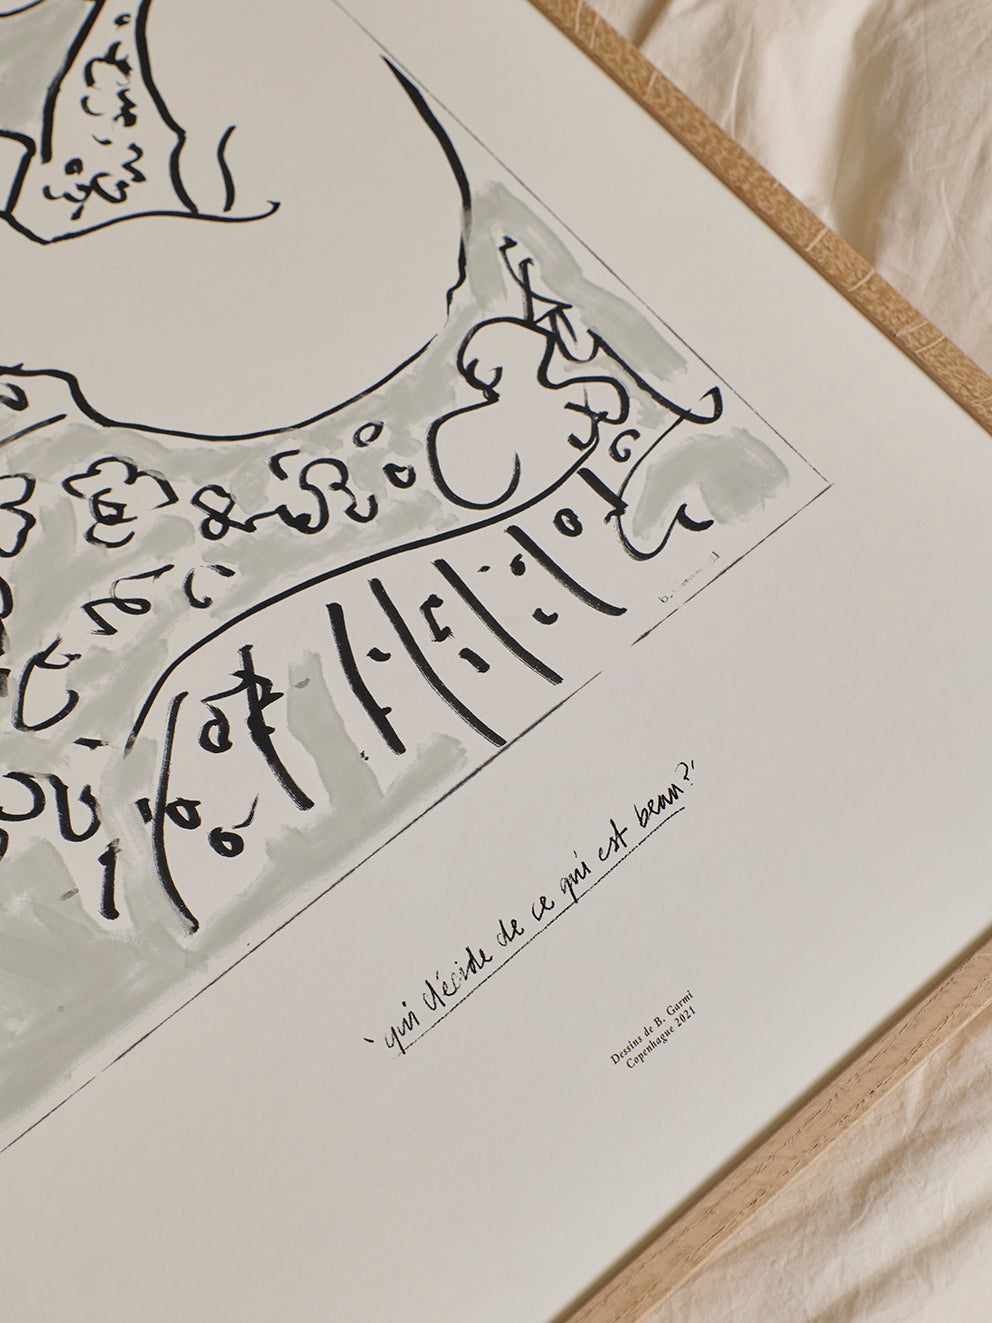 'qui décide de ce qui est beau?'
Dessins de B. Garmi
Copenhague 2021